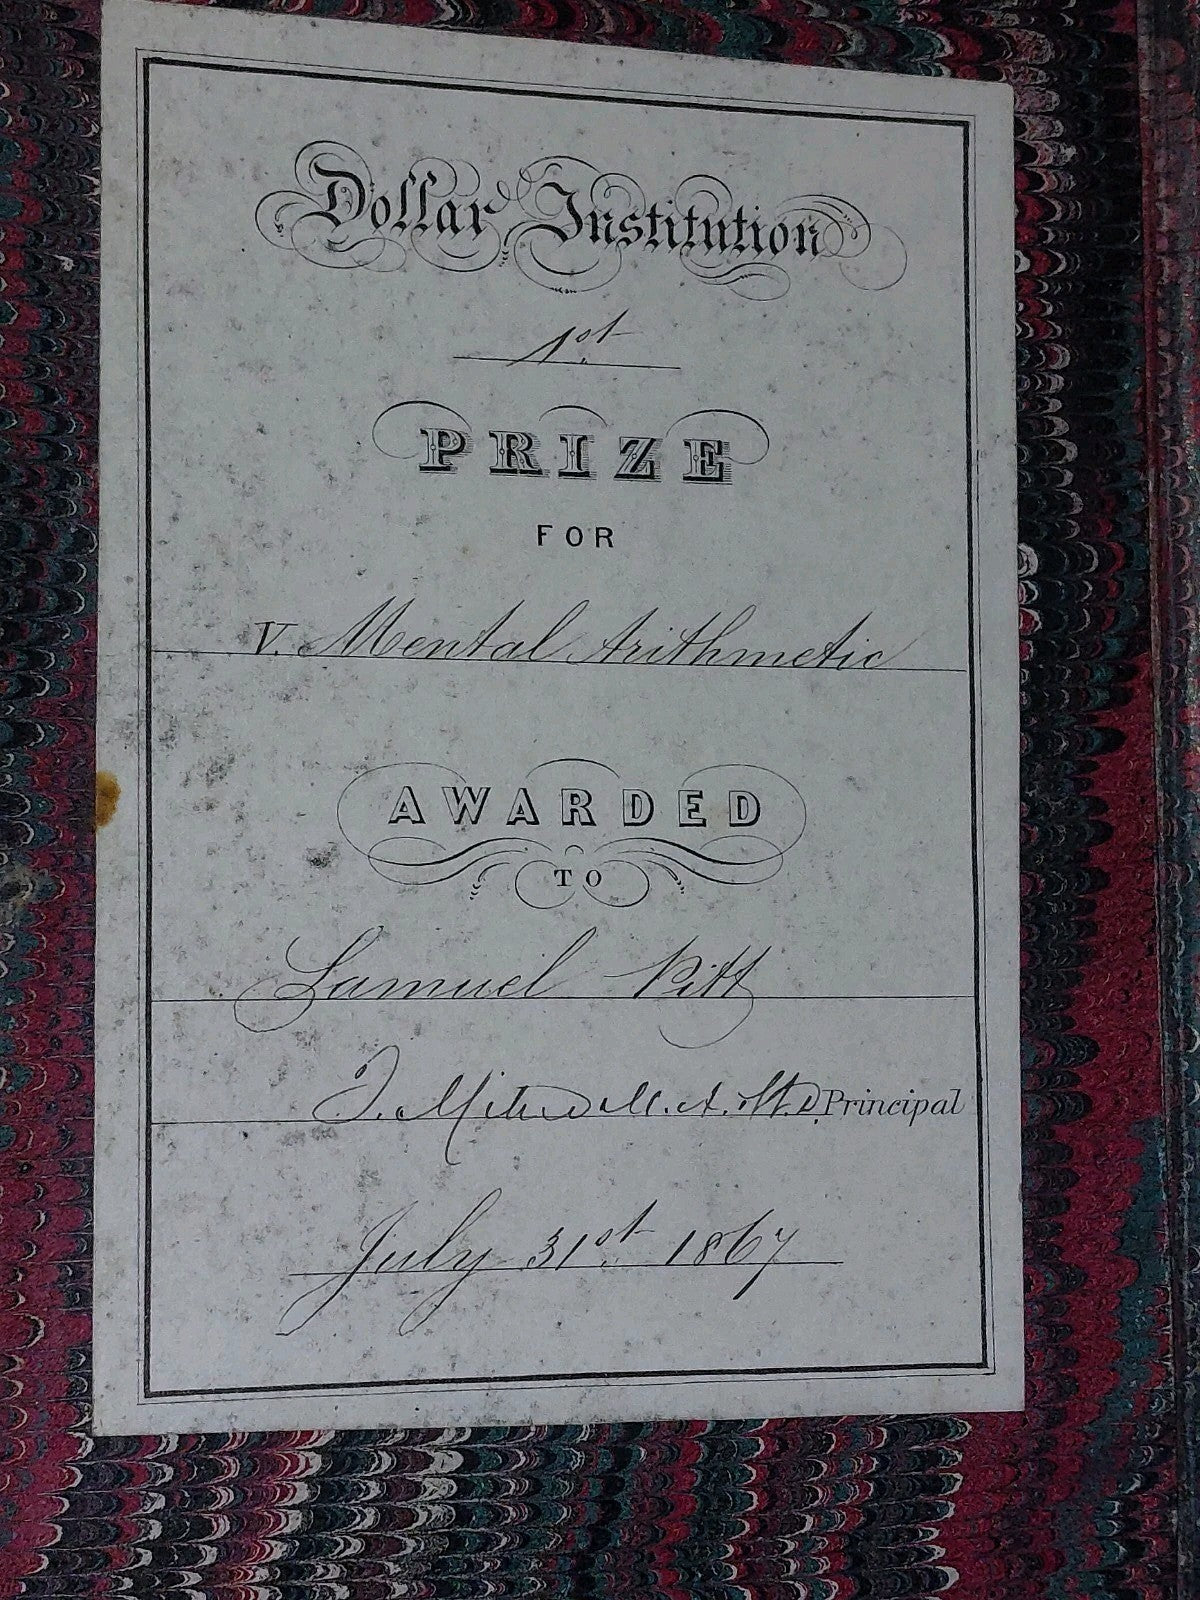 Dollar Institution
1st
PRIZE
FOR
V. Mental Arithmetic
AWARDED
TO
Samuel Pitt
J. M.A. Principal
July 31st 1867